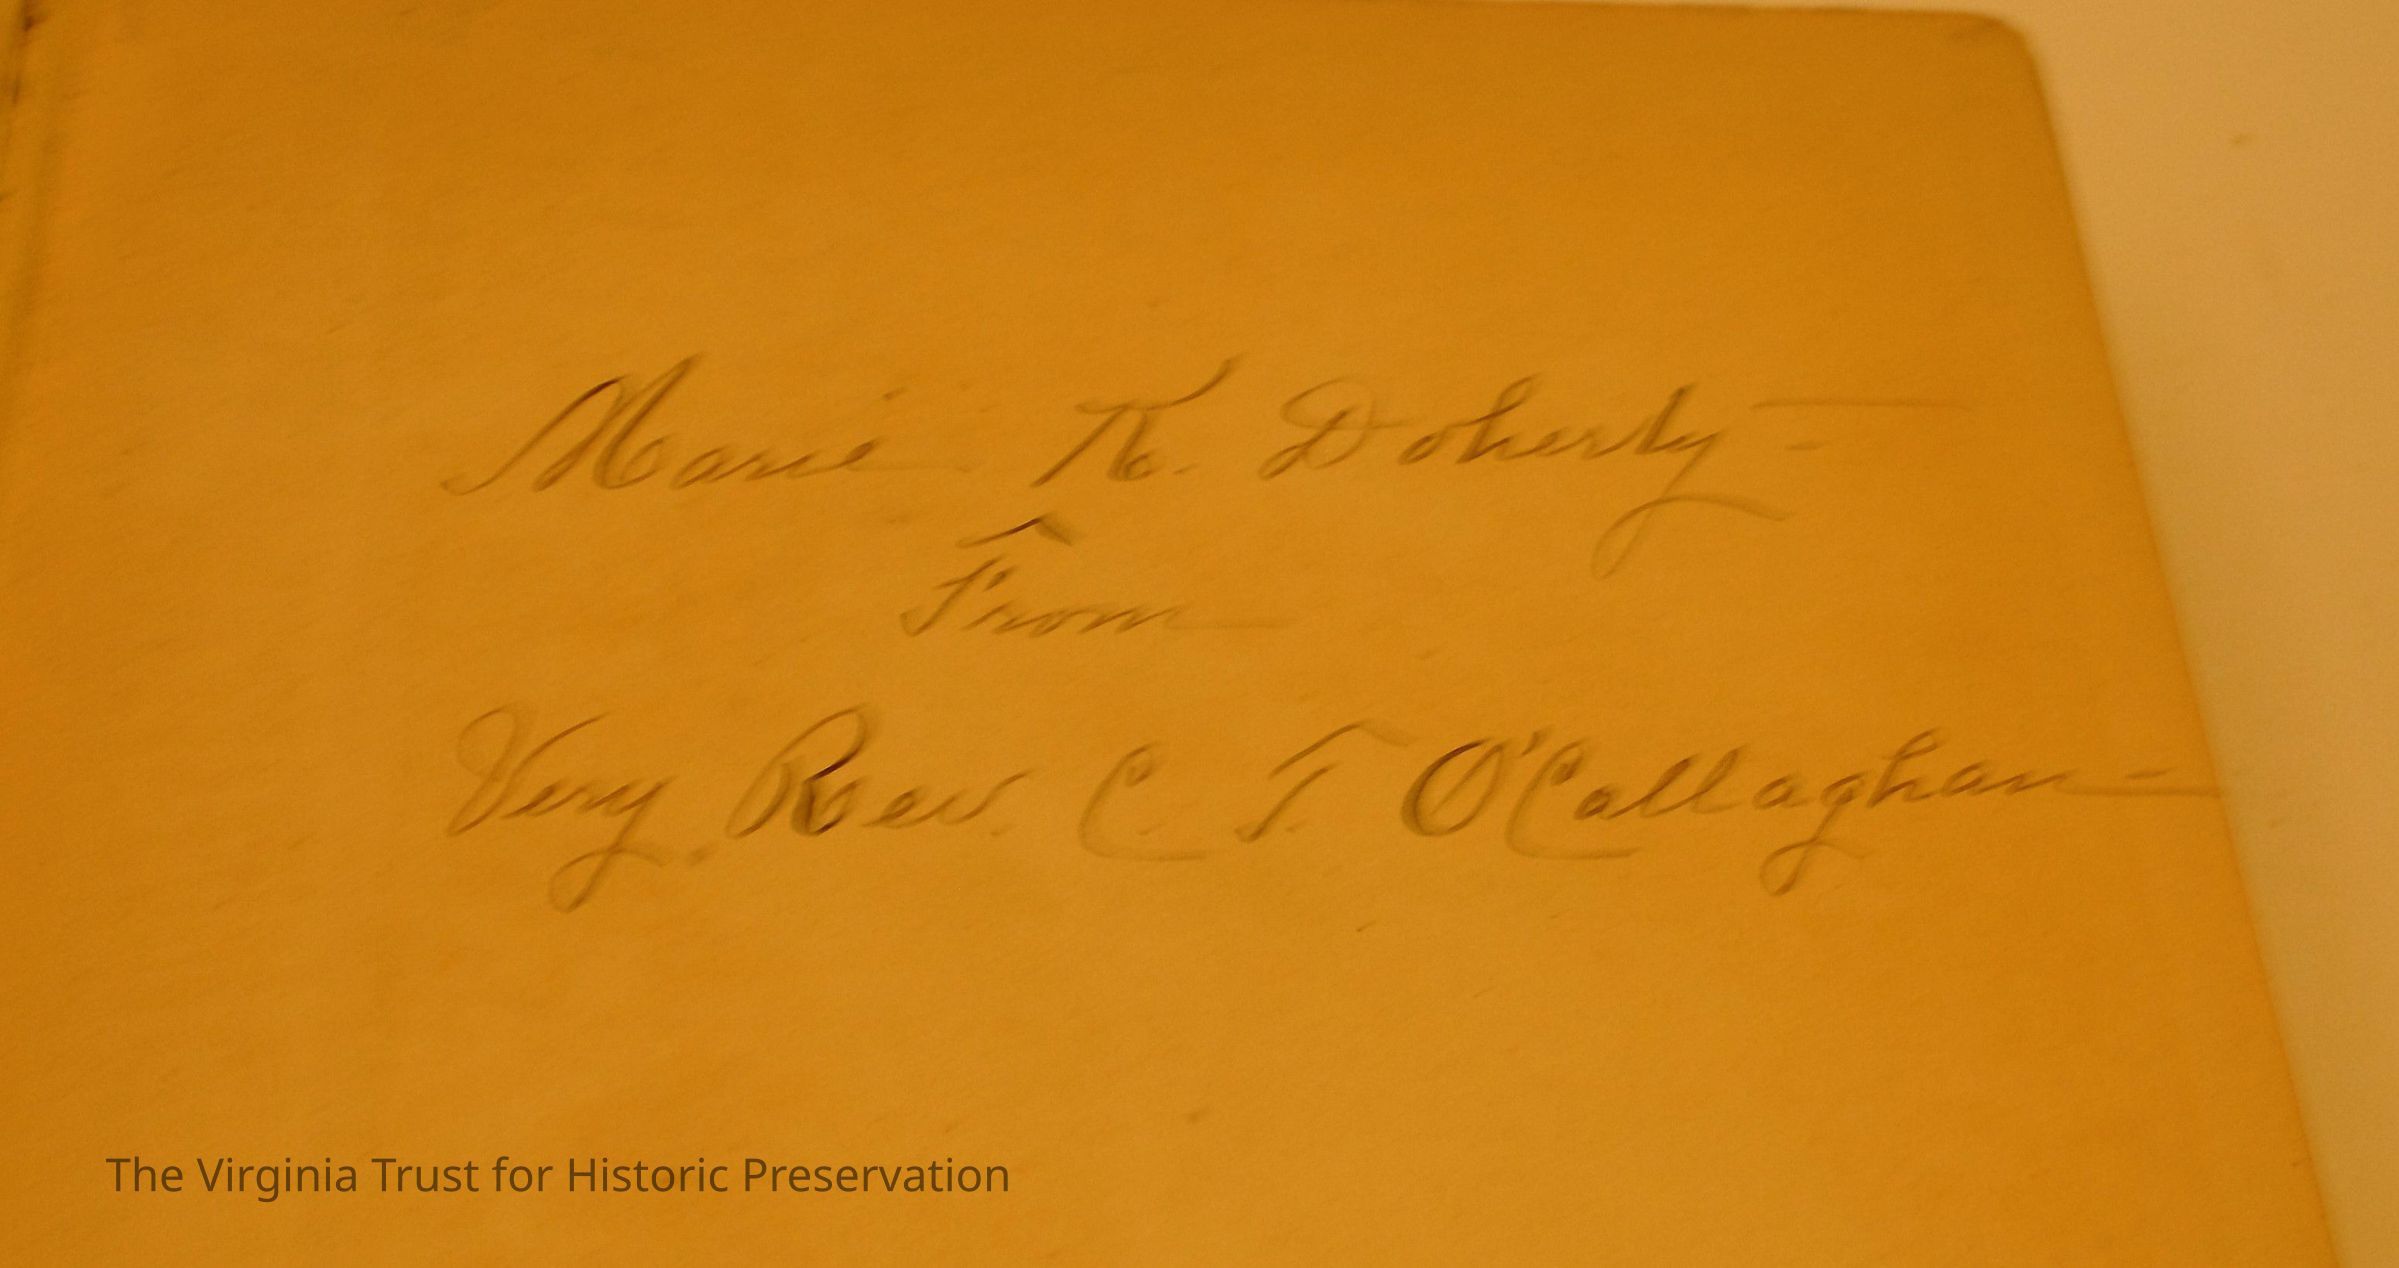 Marie K. Doherty-
From
Very Rev. C. T. O'Callaghan-
The Virginia Trust for Historic Preservation